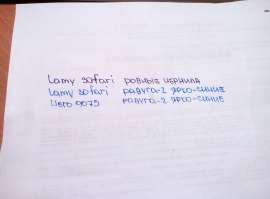 Lamy Safari родные чернила
Lamy Safari радуга-2 ярко-синие
Hero 9075 радуга-2 ярко-синие